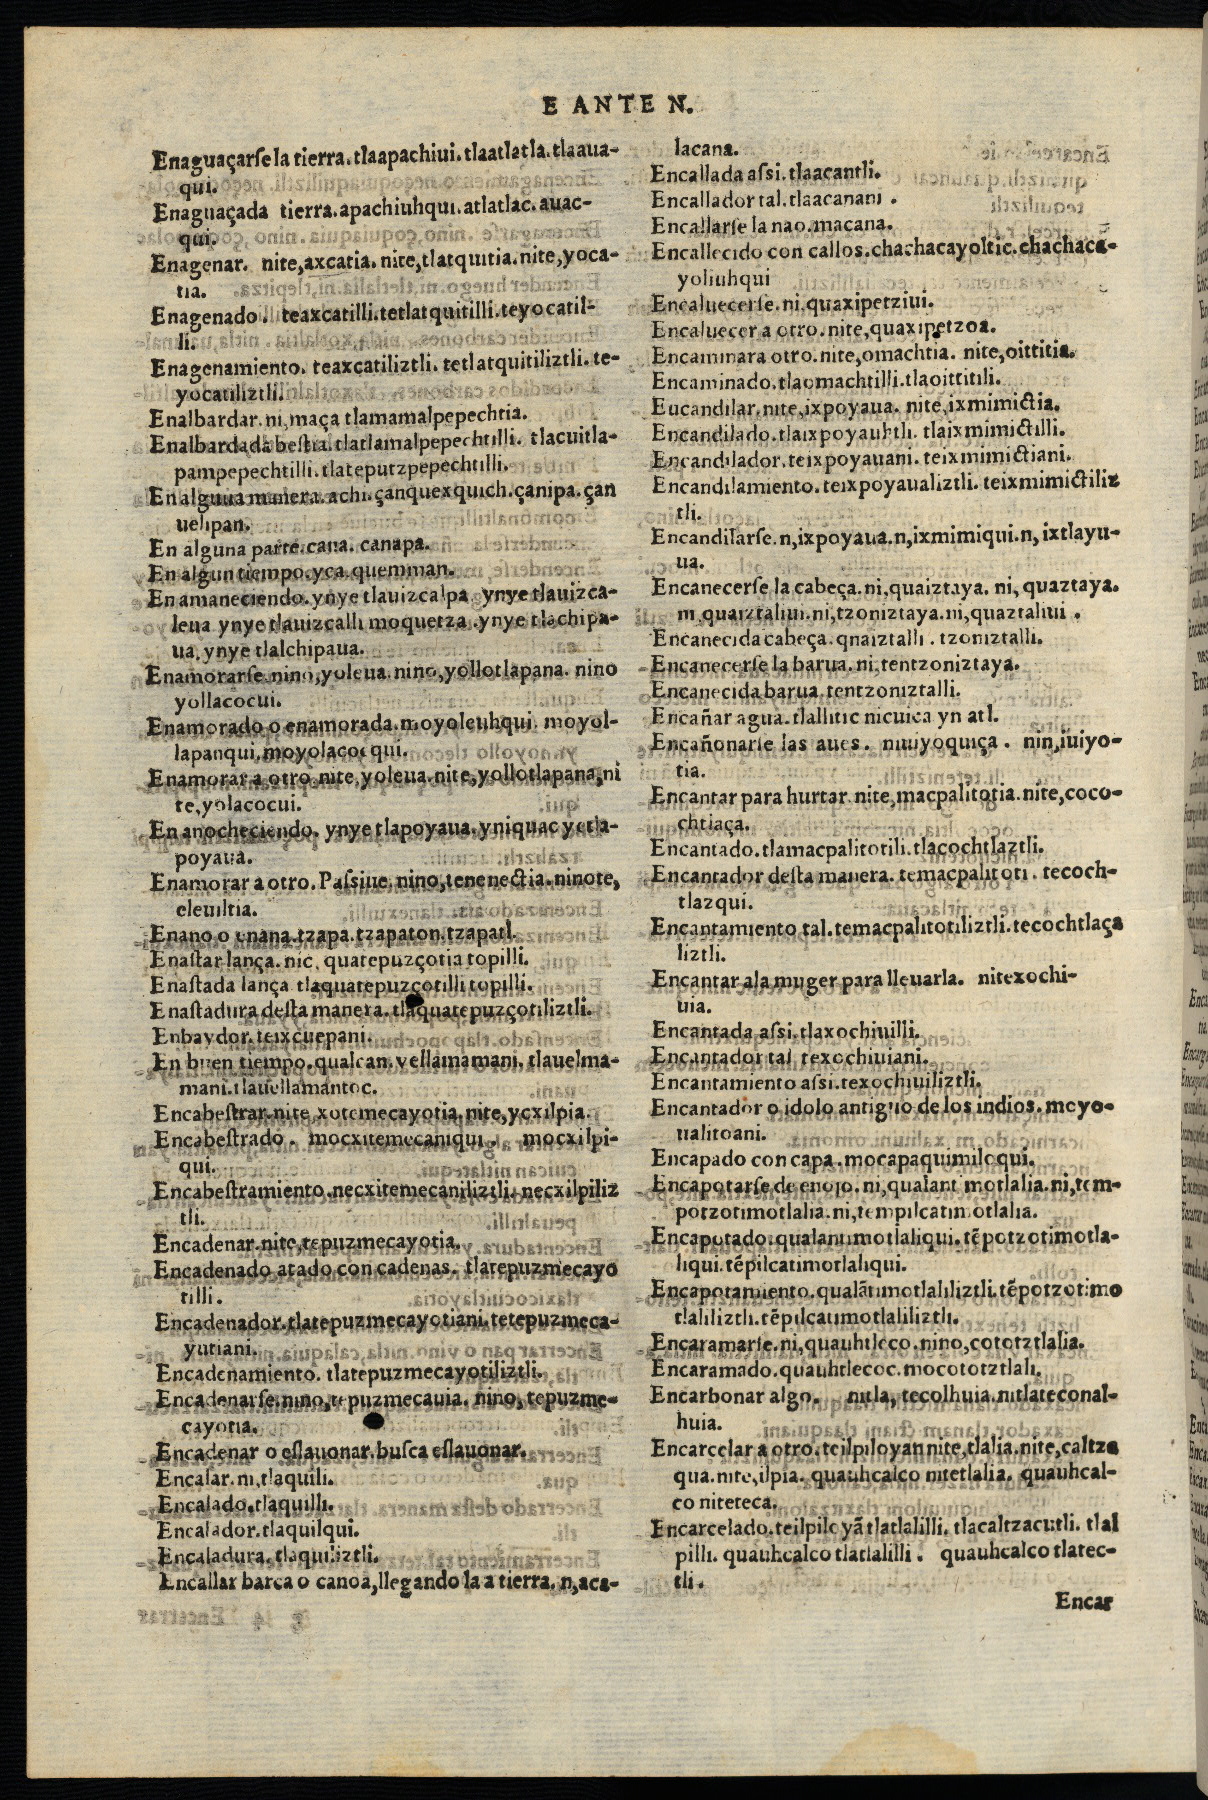 E ANTE N.
Enaguaçarſe la tierra. tlaapachiui. tlaatlatla. tlaaua-
qui.
Enaguaçada tierra. apachiuhqui. atlatlac. auac-
qui.
Enagenar. nite,axcatia. nite,tlatquitia. nite,yoca-
tia.
Enagenado. teaxcatilli. tetlatquitilli. teyocatil-
li.
Enagenamiento. teaxcatiliztli. tetlatquitiliztli. te-
yocatiliztli.
Enalbardar. ni,maça tlamamalpepechtia.
Enalbardada beſtia. tlatlamalpepechtilli. tlacuitla-
pampepechtilli. tlateputzpepechtilli.
En alguna manera. achi. çanquexquich. çanipa. çan
uelipan.
En alguna parte. cana. canapa.
En algun tiempo. yca quemman.
En amaneciendo. ynye tlauizcalpa ynye tlauizca-
leua ynye tlauizcalli moquetza .ynye tlachipa-
ua. ynye tlalchipaua.
Enamorarſe. nino,yoleua. nino,yollotlapana. nino
yollacocui.
Enamorado o enamorada. moyoleuhqui. moyol-
lapanqui. moyolacocqui.
Enamorar a otro. nite,yoleua. nite,yollotlapana,ni
te,yolacocui.
En anocheciendo. ynye tlapoyaua. yniquac yetla-
poyaua.
Enamorar a otro. Paſsiue. nino,tenenectia. ninote,
eleuiltia.
Enano o enana. tzapa. tzapaton. tzapatl.
Enaſtar lança. nic, quatepuzçotia topilli.
Enaſtada lança tlaquatepuzçotilli topilli.
Enaſtadura deſta manera. tlaquatepuzçotiliztli.
Enbaydor. teixcuepani.
En buen tiempo. qualcan. vellamamani. tlauelma-
mani. tlauellamantoc.
Encabeſtrar. nite xotemecayotia. nite,ycxilpia.
Encabeſtrado. mocxitemecaniqui. mocxilpi-
qui.
Encabeſtramiento. necxitemecaniliztli. necxilpiliz
tli.
Encadenar. nite,tepuzmecayotia.
Encadenado atado con cadenas. tlatepuzmecayo
tilli.
Encadenador. tlatepuzmecayotiani. tetepuzmeca-
yutiani.
Encadenamiento. tlatepuzmecayotiliztli.
Encadenarſe. nino,tepuzmecauia. nino, tepuzme-
cayotia.
Encadenar o eſlauonar. buſca eſlauonar.
Encalar. ni,tlaquili.
Encalado. tlaquilli.
Encalador. tlaquilqui.
Encaladura. tlaquiliztli.
Encallar barca o canoa,llegando la a tierra. n,aca-
lacana.
Encallada aſsi. tlaacantli.
Encallador tal. tlaacanani .
Encallarſe la nao. macana.
Encallecido con callos. chachacayoltic. chachaca-
yoliuhqui
Encaluecerſe. ni,quaxipetziui.
Encaluecer a otro. nite,quaxipetzoa.
Encaminar a otro. nite,omachtia. nite,oittitia.
Encaminado. tlaomachtilli. tlaoittitili.
Eucandilar. nite,ixpoyaua. nite,ixmimictia.
Encandilado. tlaixpoyauhtli. tlaixmimictilli.
Encandilador. teixpoyauani. teixmimictiani.
Encandilamiento. teixpoyaualiztli. teixmimictiliz
tli.
Encandilarſe. n,ixpoyaua. n,ixmimiqui. n, ixtlayu-
ua.
Encanecerſe la cabeça. ni,quaiztaya. ni, quaztaya.
ni quaiztaliui. ni,tzoniztaya. ni,quaztaliui .
Encanecida cabeça. qnaiztalli . tzoniztalli.
Encanecerſe la barua. ni,tentzoniztaya.
Encanecida barua. tentzoniztalli.
Encañar agua. tlallitic nicuica yn atl.
Encañonarſe las aues. niuiyoquiça . nin,iuiyo-
tia.
Encantar para hurtar. nite,macpalitotia. nite,coco-
chtiaça.
Encantado. tlamacpalitotili. tlacochtlaztli.
Encantador deſta manera. temacpalitoti . tecoch-
tlazqui.
Encantamiento tal. temacpalitotiliztli. tecochtlaça
liztli.
Encantar ala muger para lleuarla. nitexochi-
uia.
Encantada aſsi. tlaxochiuilli.
Encantador tal texochiuiani.
Encantamiento aſsi. texochiuiliztli.
Encantador o idolo antiguo de los indios. moyo-
ualitoani.
Encapado con capa . mocapaquimiloqui.
Encapotarſe de enojo. ni,qualant motlalia. ni,tem-
potzotimotlalia. ni,tempilcatimotlalia.
Encapotado. qualantimotlaliqui. tẽpotzotimotla-
liqui. tẽpilcatimotlaliqui.
Encapotamiento. qualãtimotlaliliztli. tẽpotzotimo
tlaliliztli. tẽpilcatimotlaliliztli.
Encaramarſe. ni,quauhtleco. nino,cototztlalia.
Encaramado. quauhtlecoc. mocototztlali.
Encarbonar algo. nitla, tecolhuia. nitlateconal-
huia.
Encarcelar a otro. teilpiloyan nite,tlalia. nite,caltza
qua. nite,ilpia. quauhcalco nitetlalia. quauhcal-
co niteteca.
Encarcelado. teilpiloyã tlatlalilli. tlacaltzacutli. tlal
pilli. quauhcalco tlatlalilli . quauhcalco tlatec-
tli.
Encar